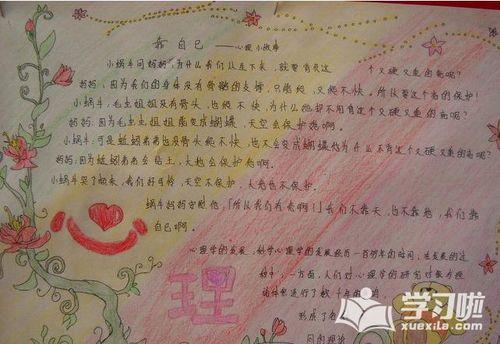 靠自己——心理小故事
小蜗牛问妈妈:为什么我们从生下来,就要背负这个又硬又重的壳呢?
妈妈:因为我们的身体没有骨骼的支撑,只能爬,又爬不快。所以要这个壳的保护!
小蜗牛:毛虫姐姐没有骨头,也爬不快,为什么她却不用背这个又硬又重的壳呢?
妈妈:因为毛虫姐姐能变成蝴蝶,天空会保护她啊。
小蜗牛:可是蚯蚓弟弟也没骨头爬不快,也不会变成蝴蝶他为什么不背这个又硬又重的壳呢?
妈妈:因为蚯蚓弟弟会钻土,大地会保护他啊。
小蜗牛哭了起来:我们好可怜,天空不保护,大地也不保护。
蜗牛妈妈安慰他:「所以我们有壳啊!」我们不靠天,也不靠地,我们靠自己啊。
心理学的发展,科学心理学的发展经历一百多年的时间,在发展的过
程中,一方面,人们对心理学的研究对象与理
行了数十年的
形成了各
同的理论
理
学习啦
xuexila.com